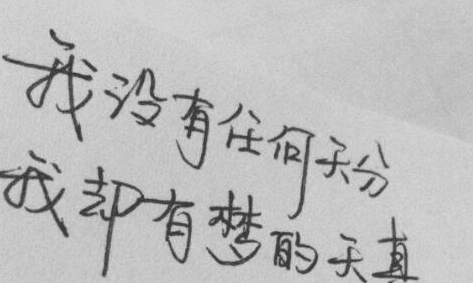 我没有任何天分
我却有梦的天真